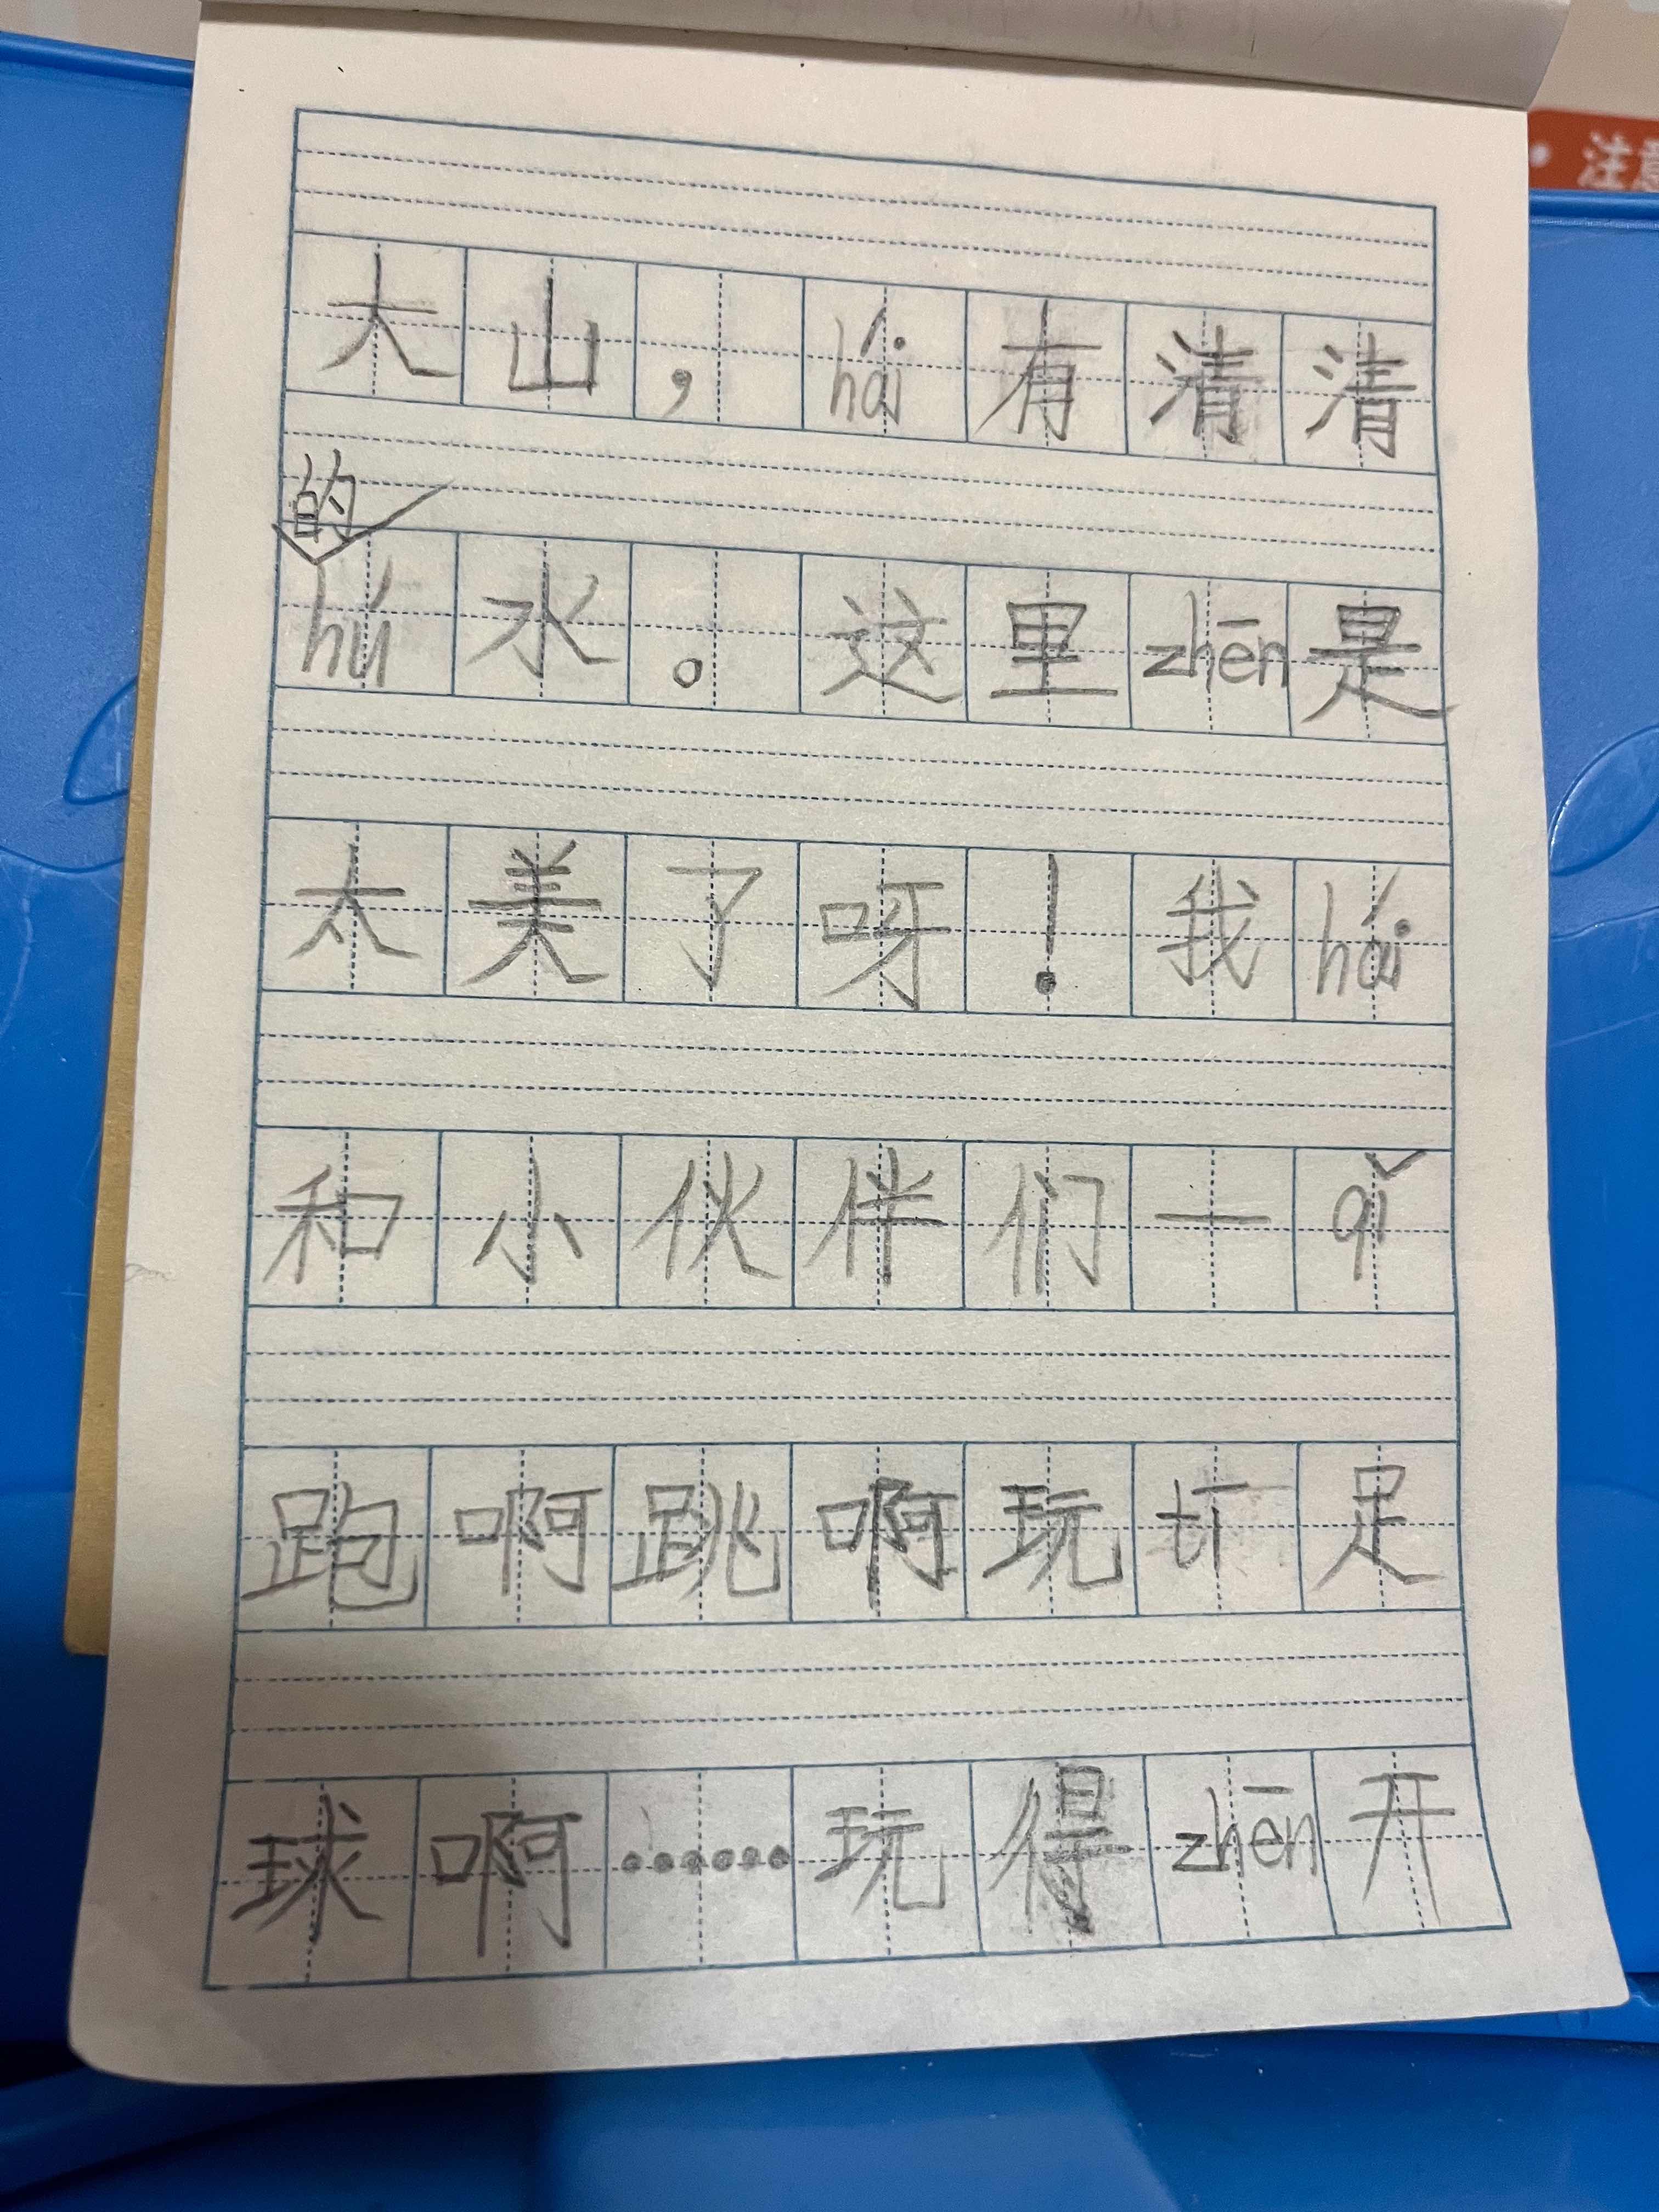 注意
大山，hái有清清
的
hú水。这里zhēn是
太美了呀！我hái
和小伙伴们一qǐ
跑啊跳啊玩 足
球啊……玩得zhēn开